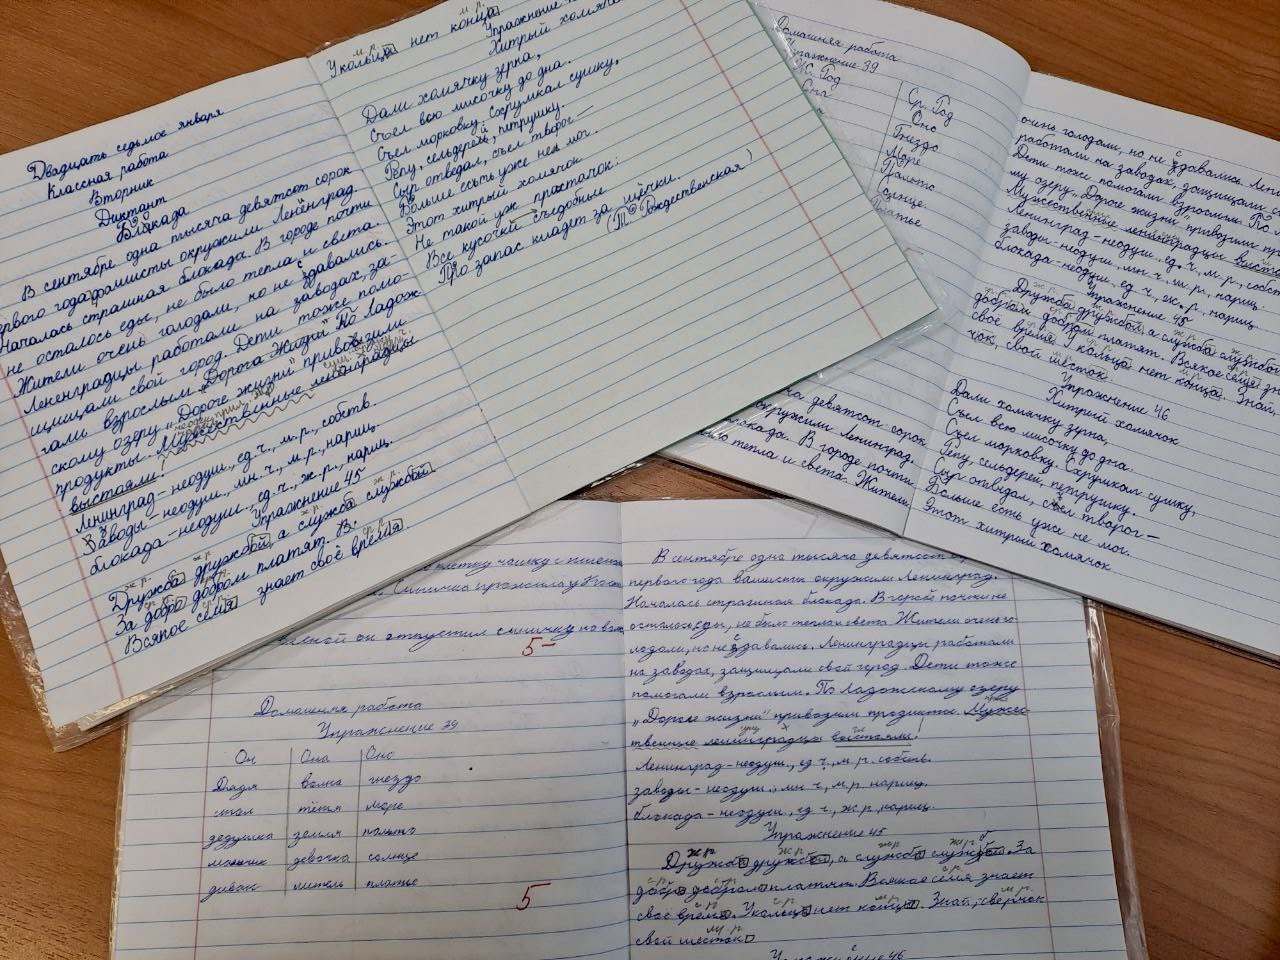 Двадцать седьмое января
Классная работа
Вторник
Диктант
Блокада
В сентябре одна тысяча девятсот сорок
первого года фашисты окружили Ленинград.
Началась страшная блокада. В городе почти
не осталось еды, не было тепла и света.
Жители очень голодали, но не здавались.
Ленинградцы работали на заводах, за-
щищали свой город. Дети тоже помо-
гали взрослым. "Дорога Жизни" По Ладож
скому озеру "Дороге жизни" привозили
продукты. Мужественные ленинградцы
выстояли.
Ленинград - неодуш., ед. ч., м. р., собств.
Заводы - неодуш., мн. ч., м. р., нариц.
блокада - неодуш., ед. ч., ж. р., нариц.
Упражнение 45
Дружба дружбой, а служба службой.
За добро добром платят. В.
Всякое семя знает своё время.
У кольца нет конца.
Упражнение
Хитрый хомячок
Дали хомячку зерна,
Съел всю мисочку до дна.
Съел морковку. Схрумкал сушку,
Репу, сельдерей, петрушку.
Сыр отведал, съел творог -
Больше есть уже не мог.
Этот хитрый хомячок
Не такой уж простачок:
Все кусочки съедобные
Про запас кладёт за щёчки.
(Т. Рождественская)
Домашняя работа
Упражнение 39
Ж. Род
Ср. Род
Она
Оно
Гнездо
Море
Пальто
Солнце
Платье
девятсот сорок
окружили Ленинград.
блокада. В городе почти
было тепла и света. Жители
очень голодали, но не здавались.
работали на заводах, защищали
Дети тоже помогали взрослым. По
му озеру "Дороге жизни" привозили
Мужественные ленинградцы
Ленинград - неодуш., ед. ч., м. р., собств
заводы - неодуш., мн. ч., м. р., нариц.
блокада - неодуш., ед. ч., ж. р., нариц
Упражнение 45
Дружба дружбой, а служба службой
добром платят. Всякое семя
своё время. У кольца нет конца. Знай,
чок, свой шесток.
Упражнение 46
Хитрый хомячок
Дали хомячку зерна,
Съел всю мисочку до дна.
Съел морковку. Схрумкал сушку,
Репу, сельдерей, петрушку.
Сыр отведал, съел творог -
Больше есть уже не мог.
Этот хитрый хомячок
клетку чашку с
Синичка прожила у
он отпустил синичку на
5-
Домашняя работа
Упражнение 39
Он Она Оно
Дядя волна гнездо
стол тётя море
дедушка земля пальто
мальчик девочка солнце
диван метель платье
5
В сентябре одна тысяча девятсот
первого года фашисты окружили Ленинград.
Началась страшная блокада. В городе почти не
осталось еды, не было тепла и света. Жители очень го-
лодали, но не здавались. Ленинградцы работали
на заводах, защищали свой город. Дети тоже
помогали взрослым. По Ладожскому озеру
"Дороге жизни" привозили продукты. Мужес-
твенные ленинградцы выстояли.
Ленинград - неодуш., ед ч., м. р. собств.
заводы - неодуш., мн ч., м. р. нариц.
блокада - неодуш., ед. ч., ж. р. нариц.
Упражнение 45
Дружба дружбой, а служба службой. За
добро добром платят. Всякое семя знает
своё время. У кольца нет конца. Знай, сверчок
свой шесток.
Упражнение 46